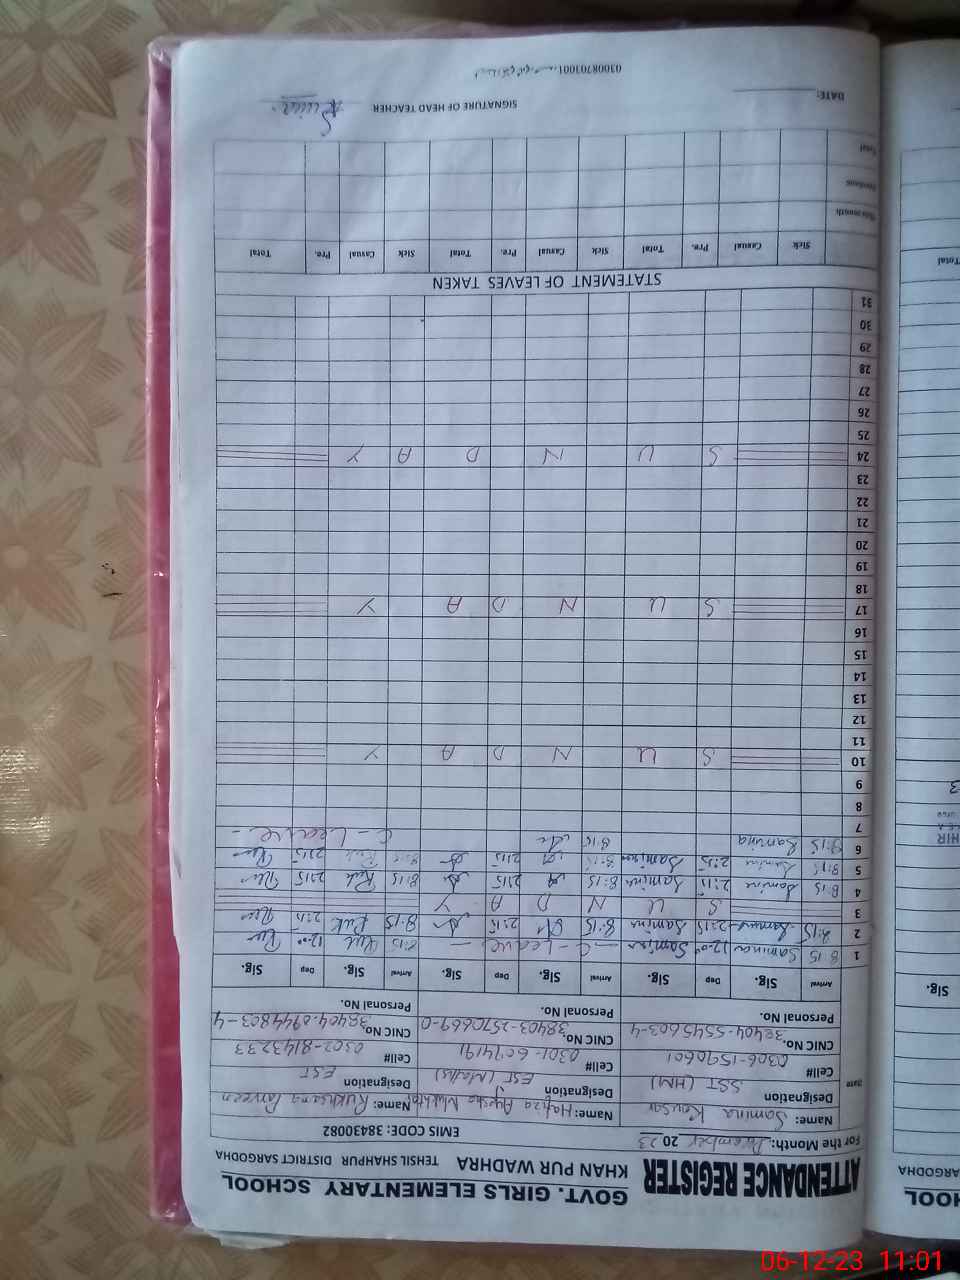 GOVT. GIRLS ELEMENTARY SCHOOL
ATTENDANCE REGISTER KHAN PUR WADHRA TEHSIL SHAHPUR DISTRICT SARGODHA
For the Month: December 2023 EMIS CODE: 38430082
Name: Samina Kausar Name: Hafiza Ayesha Name: Rukhsana Parveen
Designation SST (HM) Designation EST (Maths) Designation EST
Date
Cell# 0306-1590601 Cell# 0301-6094191 Cell# 0302-8143233
CNIC No. 38404-5545603-4 CNIC No. 38403-2570669-0 CNIC No. 38404-0944803-4
Personal No. Personal No. Personal No.
Arrival Sig. Dep Sig. Arrival Sig. Dep Sig. Arrival Sig. Dep Sig.
1 8:15 Samina 12:00 Samina C-Leave 8:15 Ruk 12:00
2 8:15 Samina 2:15 Samina 8:15 2:15 8:15 Ruk 2:15
3 S U N D A Y
4 8:15 Samina 2:15 Samina 8:15 2:15 8:15 Ruk 2:15
5 8:15 Samina 2:15 Samina 8:15 2:15 8:15 Ruk 2:15
6 8:15 Samina 8:15 C-Leave-
7
8
9
10 S U N D A Y
11
12
13
14
15
16
17 S U N D A Y
18
19
20
21
22
23
24 S U N D A Y
25
26
27
28
29
30
31
STATEMENT OF LEAVES TAKEN
Sick Casual Pre. Total Sick Casual Pre. Total Sick Casual Pre. Total
This month
Previous
Total
DATE: SIGNATURE OF HEAD TEACHER
03008703001
SARGODHA
Sig.
Total
06-12-23 11:01